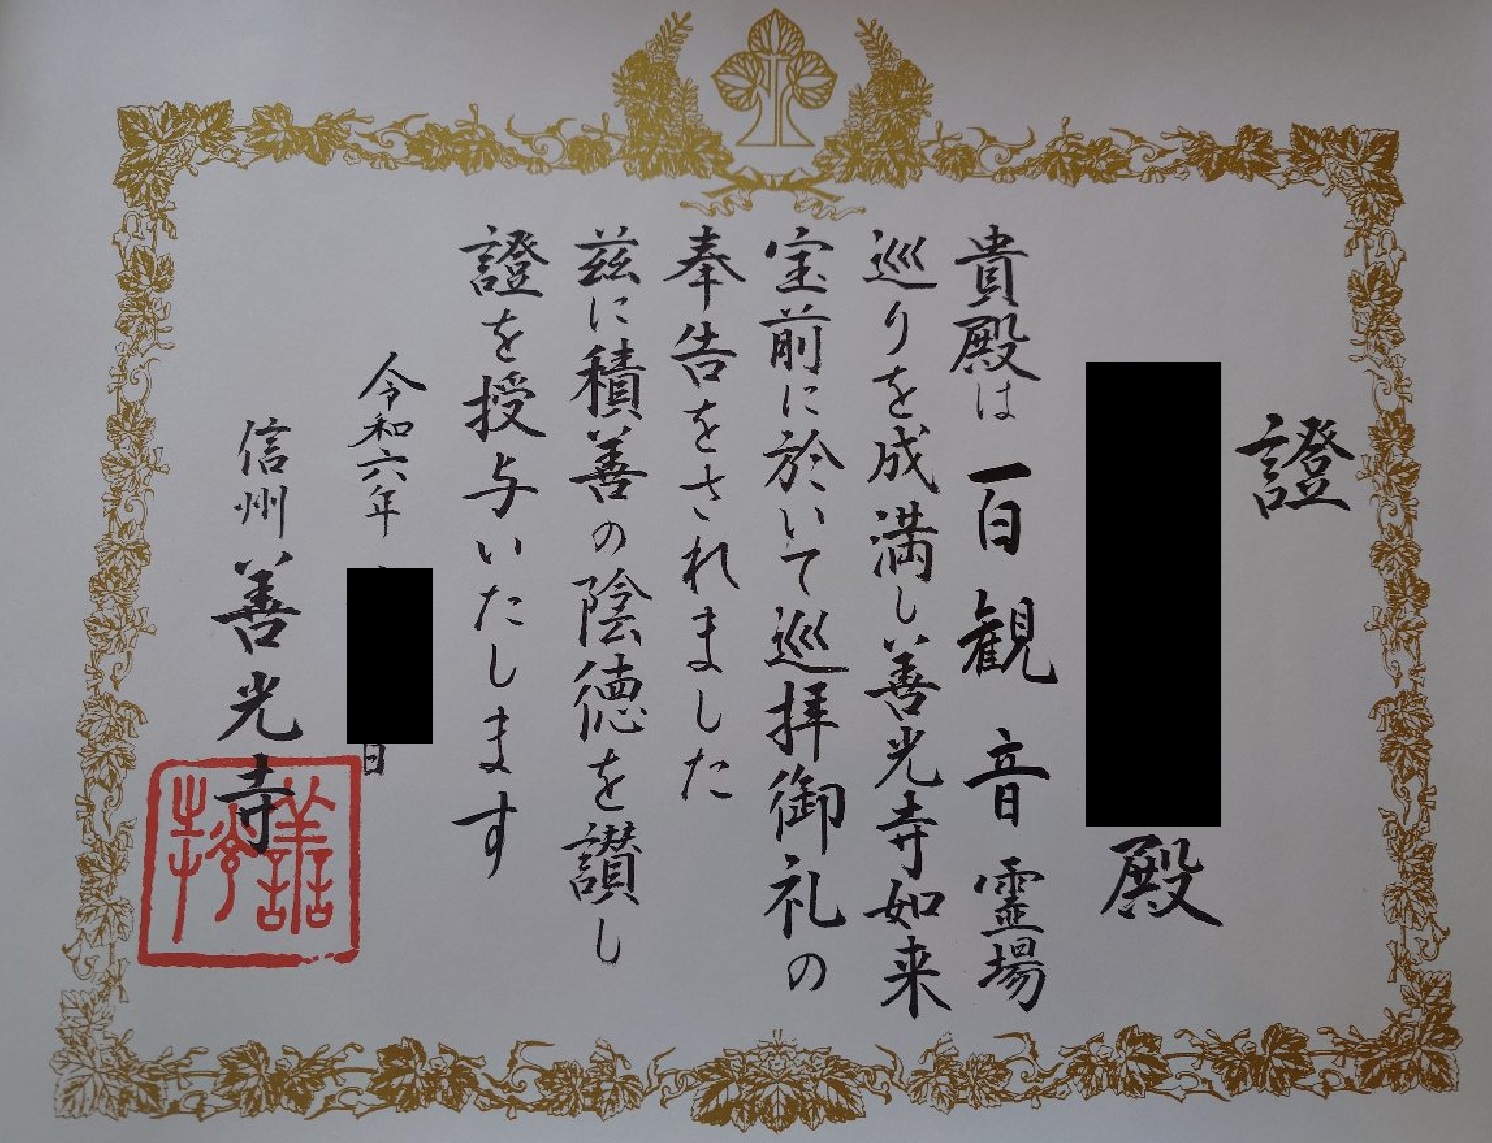 證
殿
貴殿は一百観音霊場
巡りを成満し善光寺如来
宝前に於いて巡拝御礼の
奉告をされました
茲に積善の陰徳を讃し
證を授与いたします
令和六年
日
信州 善光寺